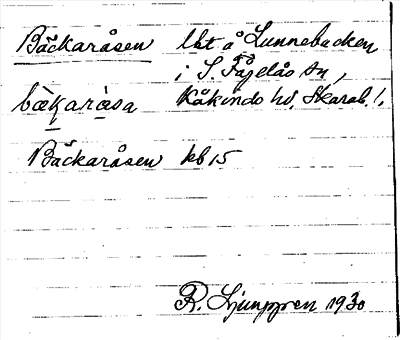 Bäckaråsen lht å Lunnebacken
i S. Fågelås sn,
bäkaråsa Kåkinds hd, Skarab. l.
Bäckaråsen kb 15
R. Ljunggren 1930